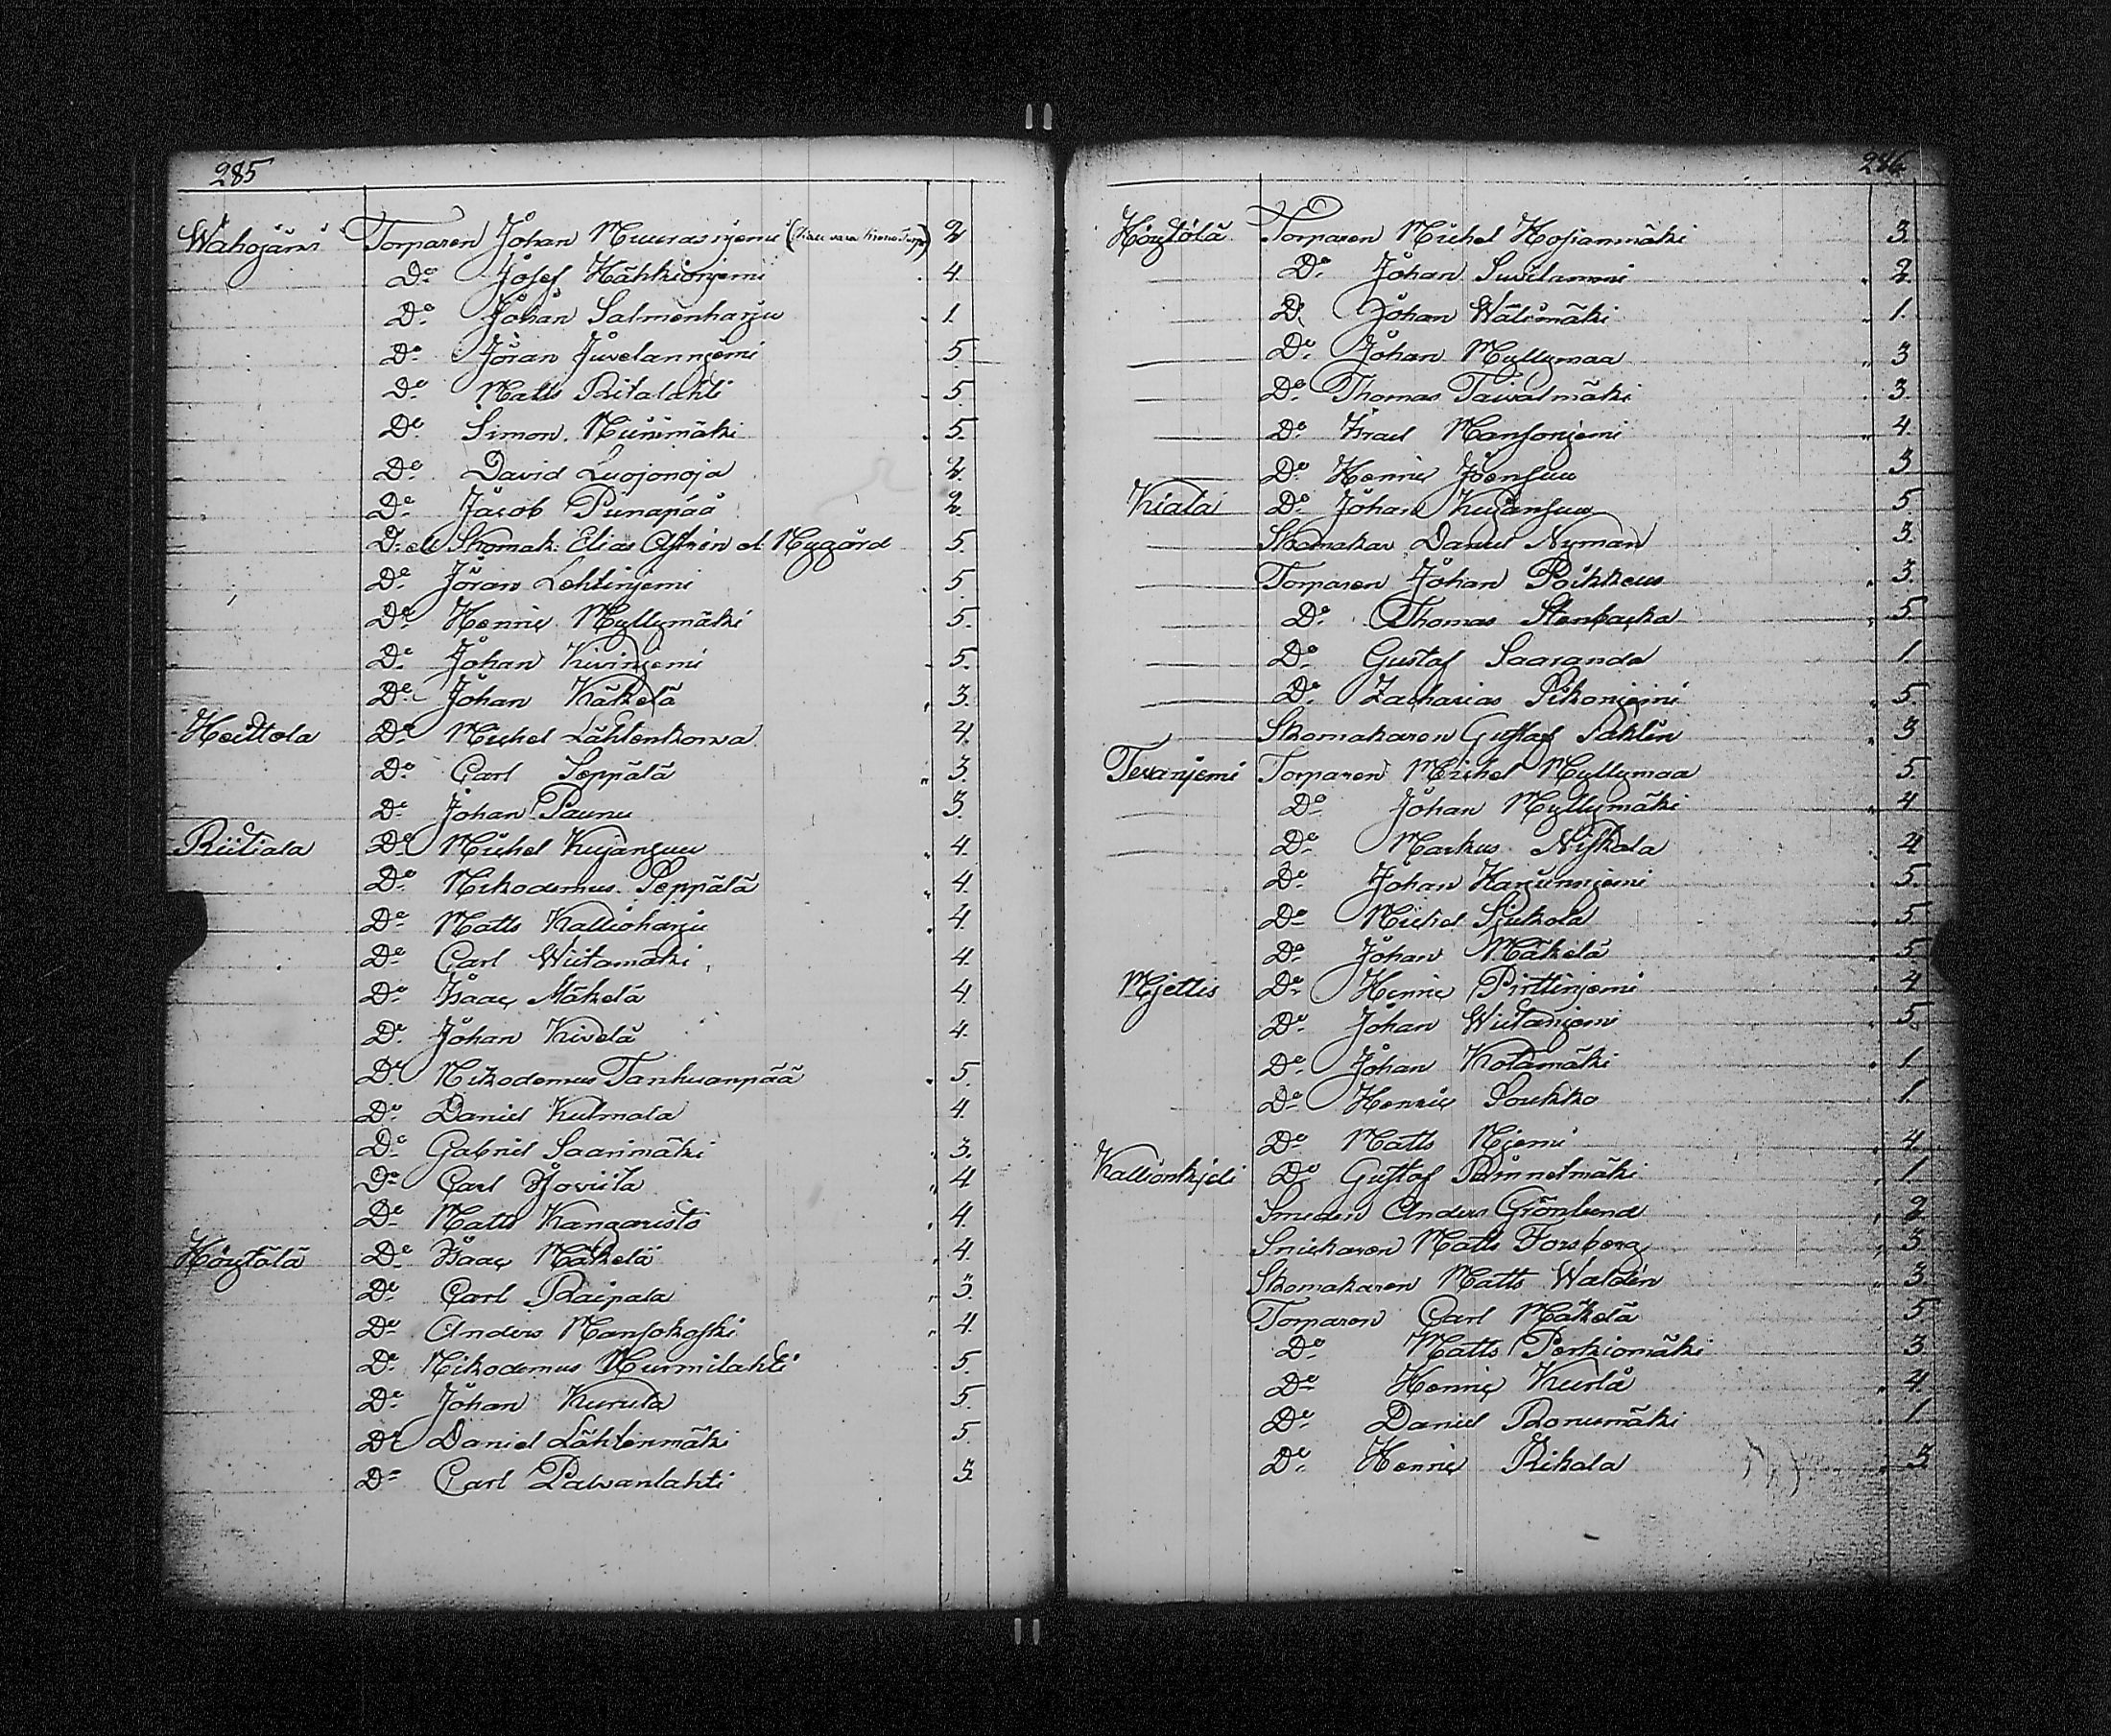 285
Wahojärvi Torparen Johan Muurasnjemi 2
Do Josef Hähkiönjemi 4.
Do Johan Salmenharju 1.
Do Jöran Juvelannjemi 5.
Do Matts Ritalahti 5
Do Simon Niinimäki 5.
Do David Luojonoja 2.
Do Jacob Punapää 2.
Do el. Skomak: Elias el. Nygård 5.
Do Jöran Lehtinjemi 5.
Do Henric Myllymäki 5.
Do Johan Kivinjemi 5.
Do Johan Käkelä 3.
Heittola Do Michel Lähtenkorva 4.
Do Carl Seppälä 3.
Do Johan Paunu 3.
Riitiala Do Michel Kujansuu 4.
Do Nikodemus Seppälä 4.
Do Matts Kallioharju 4.
Do Carl Wiitamäki 4.
Do Isaac Mäkelä 4.
Do Johan Kivelä 4.
Do Nikodemus Tanhuanpää 5.
Do Daniel Kulmala 4.
Do Gabriel Saarimäki 3.
Do Carl 4
Do Matts Kangaristo 4.
Höytölä Do Isaac Mäkelä 4.
Do Carl Raipala 3.
Do Anders Mansokoski 4.
Do Nikodemus Nurmilahti 5.
Do Johan Kurula 5.
Do Daniel Lähtenmäki 5.
Do Carl Palvanlahti 3.
286.
Höytölä Torparen Michel Kosianmäki 3.
Do Johan Suvilammi 2.
Do Johan Wälimäki 1.
Do Johan Myllymaa 3
Do Thomas Taivalmäki 3.
Do Israel Mansonjemi 4.
Do Henric Joensuu 3
Kiala Do Johan Kujansuu 5
Skomakar Daniel Nyman 3.
Torparen Johan Poikkeus 3.
Do Thomas Stenbacka 5.
Do Gustaf Saaranda 1.
Do Zacharias Pikonjemi 5
Skomakaren Gustaf Sahlin 3
Tevanjemi Torparen Michel Myllymaa 5.
Do Johan Myllymäki 4
Do Markus Niskala 4
Do Johan Harjunnjemi 5.
Do Michel Sjukola 5.
Do Johan Mäkelä 5
Mjettis Do Henric Pirttinjemi 4
Do Johan Wiitanjemi 5.
Do Johan Kotamäki 1.
Do Henric Soukko 1.
Do Matts Njemi 4.
Kallionkjeli Do Gustaf Rinnelmäki 1
Smeden Anders Grönlund 2.
Snickaren Matts Forsberg 3.
Skomakaren Matts Waldén 3.
Torparen Carl Mäkelä 5
Do Matts Perkiömäki 3.
Do Henric Kurlå 4.
Do Daniel Ronusmäki 1.
Do Henric Rikala 3.